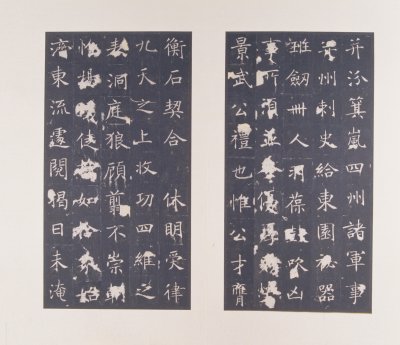 并汾箕嵐四州諸軍事
并州刺史給東園祕器
班劍卌人羽葆鼓吹凶
事所須並優厚
景武公禮也惟公才膺
衡石契合休明受律
九天之上收功四維之
表洞庭狼顧翦不崇朝
如拾始
濟東流遽閱揭日未淹